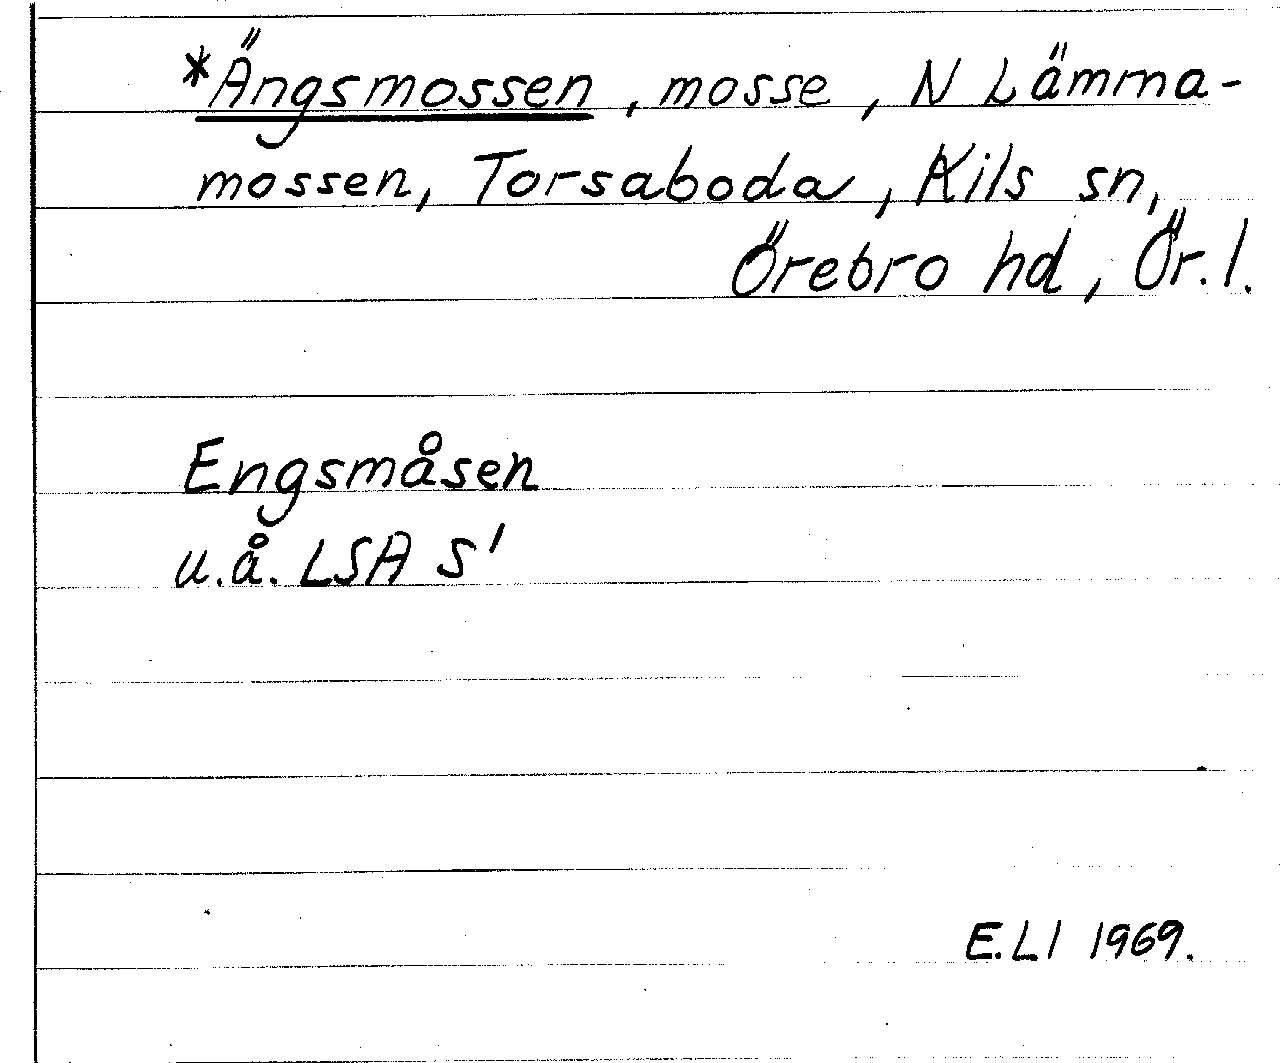 *Ängsmossen, mosse, N Lämma-
mossen, Torsaboda, Kils sn,
Örebro hd, Ör. l.
Engsmåsen
u.å. LSA S'
E.Ll 1969.